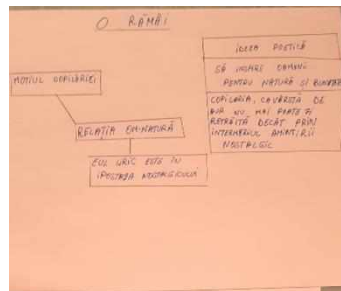 O RĂMÂI
MOTIVUL COPILĂRIEI
RELAȚIA OM-NATURĂ
EUL LIRIC ESTE ÎN
IPOSTAZA NOSTALGICULUI
IDEEA POETICĂ
SĂ INSPIRE OAMENII
PENTRU NATURĂ ȘI
COPILĂRIA, CA VÂRSTĂ DE
AUR NU MAI POATE FI
RETRĂITĂ DECÂT PRIN
INTERMEDIUL AMINTIRII
NOSTALGIC